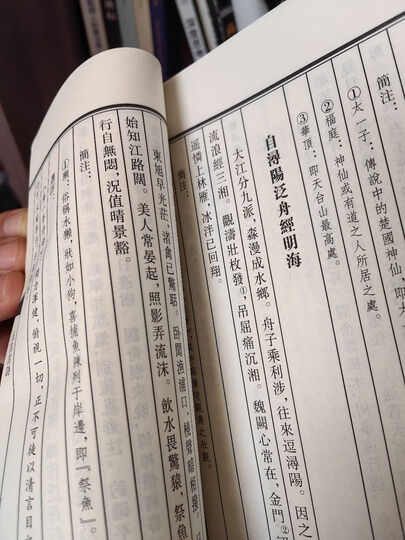 簡注:
①太一子:傳說中的楚國神仙,即太
②福庭:神仙或有道之人所居之處。
③華頂:即天台山最高處。
自潯陽泛舟經明海
大江分九派,淼漫成水鄉。舟子乘利涉,往來逗潯陽。因之
流浪經三湘。觀濤壯枚發①,吊屈痛沉湘。魏闕心常在,金門②
遥憐上林雁,冰泮已回翔。
簡注:
東旭早光芒,渚禽已驚聒。卧聞漁浦口,橈聲暗相撥。日
始知江路闊。美人常晏起,照影弄流沫。飲水畏驚猿,祭魚
行自無悶,況值晴景豁。
簡注:
①獺:俗稱水獺,狀如小狗,喜捕魚陳列于岸邊,即『祭魚』。
清健,俯視一切,正不可徒以清言目